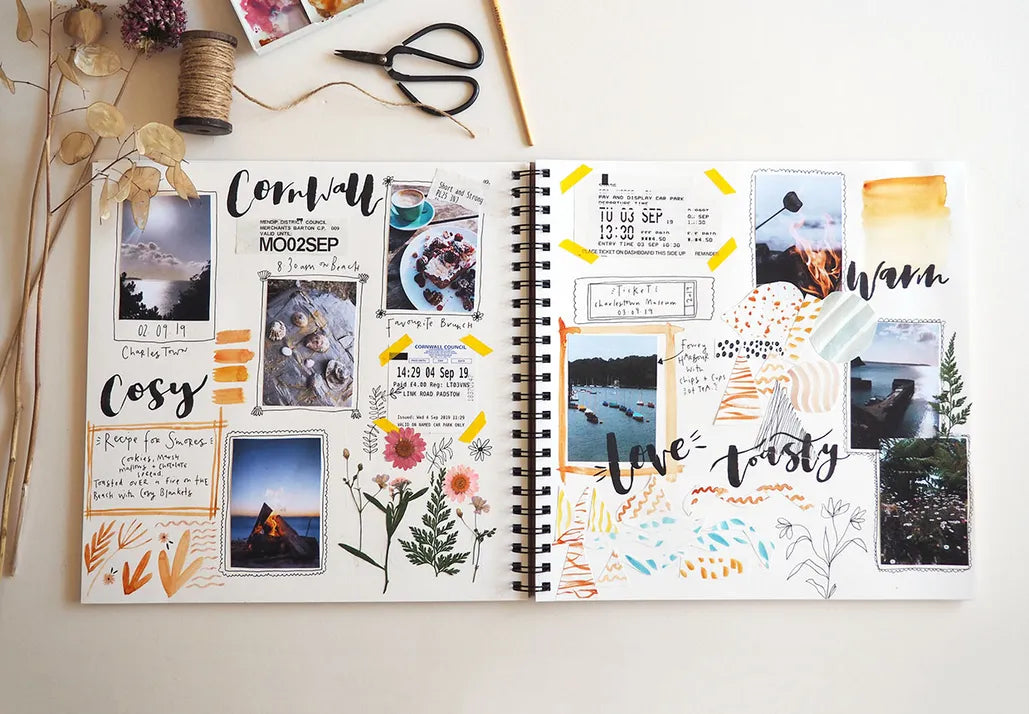 Cornwall
MENDIP DISTRICT COUNCIL
MERCHANTS BARTON C.P. 009
VALID UNTIL
MO02SEP
8:30am on Beach
Short and Strong
PL25 3NJ
02.09.19
Charlestown
Favourite Brunch
CORNWALL COUNCIL
14:29 04 Sep 19
Paid £4.00 Reg: LT03VNS
LINK ROAD PADSTOW
Issued: Wed 4 Sep 2019 11:29
VALID ON NAMED CAR PARK ONLY
Cosy
Recipe for Smores
Cookies, Marsh
mallows + chocolate
spread.
Toasted over a fire on the
Beach with Cosy Blankets
PAY AND DISPLAY CAR PARK
DEPARTURE TIME
TU 03 SEP 19
13:30
£4.50
ENTRY TIME 03 SEP 10:30
PLACE TICKET ON DASHBOARD THIS SIDE UP
REMINDER
Ticket
Charlestown Museum
03.09.19
2019
Warm
Fowey
Harbour
with
chips + cups
of tea!
Love
toasty